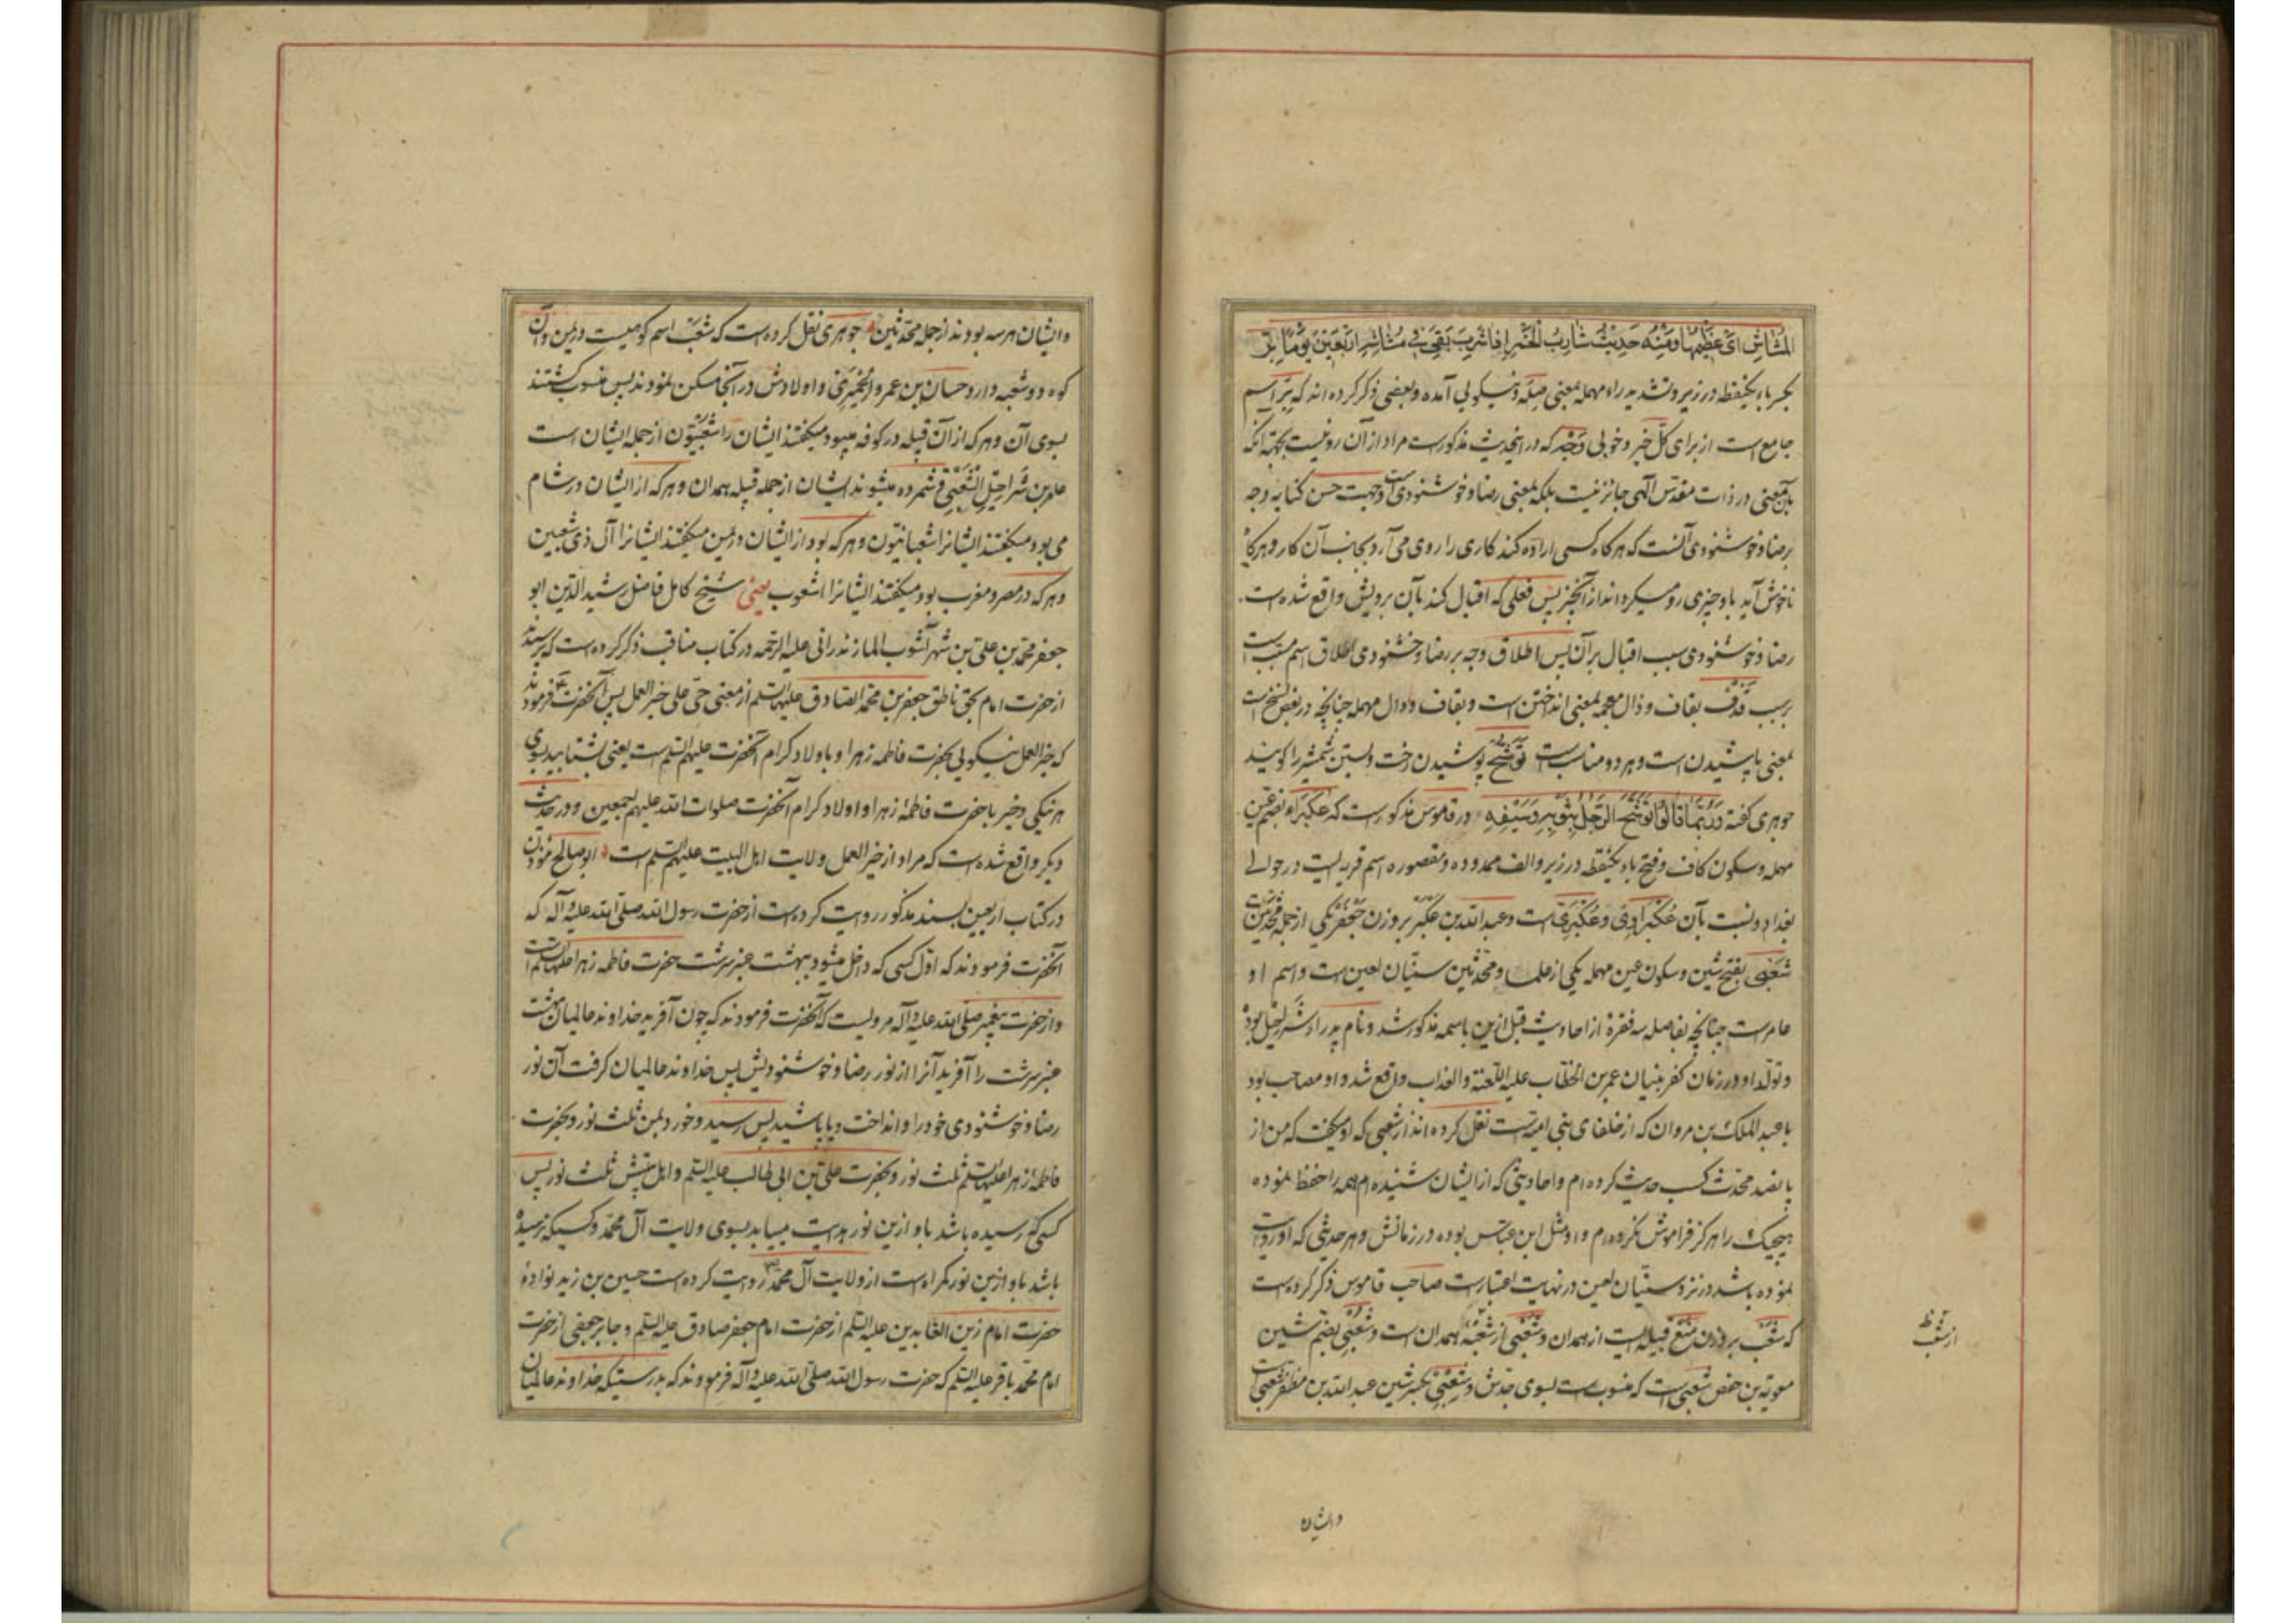 المشاش ای عظمها ومنه حدیث شارب الخمر اذا شرب بقی فی مشاشه اربعین یوما بِرّ
بکسر باء یکنقطه در زیر و تشدید راء مهمله بمعنی صِلَه و نیکوئی آمده و بعضی ذکر کرده اند که بِرّ اسم
جامع است از برای کلّ خیر و خوبی وَجْه که در اینحدیث مذکور است مراد از آن رو نیست بجهة آنکه
بآن معنی در ذات مقدّس الهی جائز نیست بلکه بمعنی رضا و خوشنودی است و جهت حسن کنایه وجه
برضا و خوشنودی آنست که هرکاه کسی اراده کند کاری را روی می آرد بجانب آن کار و هرکاه
ناخوش آید باو چیزی رو میکرداند از آنچیز پس فعلی که اقبال کند بآن برویش واقع شده است
رضا و خوشنودی سبب اقبال بر آن پس اطلاق وجه بر رضا و خوشنودی اطلاق اسم مسبّب است
بر سبب قَذْف بقاف و ذال معجمه بمعنی انداختن است و بقاف و دال مهمله چنانچه در بعض نسخ است
بمعنی پاشیدن است و هر دو مناسب است تَوَشُّح پوشیدن رخت و بستن شمشیر را کویند
جوهری کفته وَرُبَّمَا قَالُوا تَوَشَّحَ الرَّجُلُ بِثَوْبِهِ وَسَیْفِهِ در قاموس مذکور است که عُکْبَراء بضم عین
مهمله و سکون کاف و فتح باء یکنقطه در زیر و الف ممدوده و مقصوره اسم قریه ایست در حوالی
بغداد و نسبت بآن عُکْبَراوِیّ و عُکْبَرِیّ است و عبد الله بن عکبر بر وزن جعفر یکی از جمله محدّثین است
شَعْبِی بفتح شین و سکون عین مهمله یکی از علما و محدّثین سنّیان لعین است و اسم او
عامر است چنانچه بفاصله سه فقرهٔ از احادیث قبل ازین باسمه مذکور شد و نام پدر او شراحیل بوده
و تولّد او در زمان کفر بنیان عمر بن الخطّاب علیه اللّعنة والعذاب واقع شد و او مصاحب بود
با عبد الملک بن مروان که از خلفای بنی امیّه است نقل کرده اند از شعبی که او میکفت که من از
پانصد محدّث کسب حدیث کرده ام و احادیثی که از ایشان شنیده ام همه را حفظ نموده
هیچیک را هرکز فراموش نکرده ام و او مثل ابن عبّاس بوده در زمانش و هر حدیثی که او روایت
نموده باشد در نزد سنّیان لعین در نهایت اعتبار است صاحب قاموس ذکر کرده است
که شَعْب بر وزن مَنْع قبیله ایست از همدان و شَعْبی از شَعْب همدان است و شُعْبِی بضم شین
معویة بن حفص شُعبی است که منسوبست بسوی جدّش و شِعْبِی بکسر شین عبد الله بن مظفر شعبی است
از شعب
وایشان
وایشان هر سه بودند از جمله محدّثین جوهری نقل کرده است که شَعْب اسم کوهیست در یمن و آن
کوه دو شعبه دارد حسان بن عمرو الحِمْیَرِیّ و اولادش در آنجا مسکن نمودند پس منسوب کشتند
بسوی آن و هر که از آن قبیله در کوفه میبود میکفتند ایشان را شَعْبِیُّون از جمله ایشان است
عامر بن شراحیل الشَّعْبی و شمرده میشوند ایشان از جمله قبیله همدان و هر که از ایشان در شام
می بود میکفتند ایشانرا شعبانیّون و هر که بود از ایشان در یمن میکفتند ایشانرا آل ذی شعبین
و هر که در مصر و مغرب بود میکفتند ایشانرا اشعوب یعنی شیخ کامل فاضل رشید الدّین ابو
جعفر محمّد بن علیّ بن شهر آشوب المازندرانی علیه الرّحمه در کتاب مناقب ذکر کرده است که پرسیدند
از حضرت امام بحق ناطق جعفر بن محمّد الصّادق علیهما السّلم از معنی حیّ علی خیر العمل پس آنحضرت فرمودند
که خیر العمل نیکوئی بحضرت فاطمه زهرا و باولاد کرام آنحضرت علیهم السّلم است یعنی بشتابید بسوی
هر نیکی و خیر با حضرت فاطمهٔ زهرا و اولاد کرام آنحضرت صلوات الله علیهم اجمعین و در حدیث
دیکر واقع شده است که مراد از خیر العمل ولایت اهل البیت علیهم السّلم است ابو صالح مؤذن
در کتاب اربعین بسند مذکور روایت کرده است از حضرت رسول الله صلّی الله علیه و آله که
آنحضرت فرمودند که اوّل کسی که داخل میشود ببهشت عنبر سرشت حضرت فاطمه زهرا علیها السّلم است
و از حضرت پیغمبر صلّی الله علیه و آله مرویست که آنحضرت فرمودند که چون آفرید خداوند عالمیان بهشت
عنبر سرشت را آفرید آنرا از نور رضا و خوشنودیش پس خداوند عالمیان کرفت آن نور
رضا و خوشنودی خود را و انداخت و یا پاشید پس رسید و خورد بمن ثلث نور و بحضرت
فاطمهٔ زهرا علیها السّلم ثلث نور و بحضرت علیّ بن ابی طالب علیه السّلم و اهل بیتش ثلث نور پس
کسی که رسیده باشد باو ازین نور هدایت مییابد بسوی ولایت آل محمّد و کسیکه نرسیده
باشد باو ازین نور کمراه است از ولایت آل محمّد روایت کرده است حسین بن زید نوادهٔ
حضرت امام زین العابدین علیه السّلم از حضرت امام جعفر صادق علیه السّلم و جابر جعفی از حضرت
امام محمّد باقر علیه السّلم که حضرت رسول الله صلّی الله علیه و آله فرمودند که بدرستیکه خداوند عالمیان